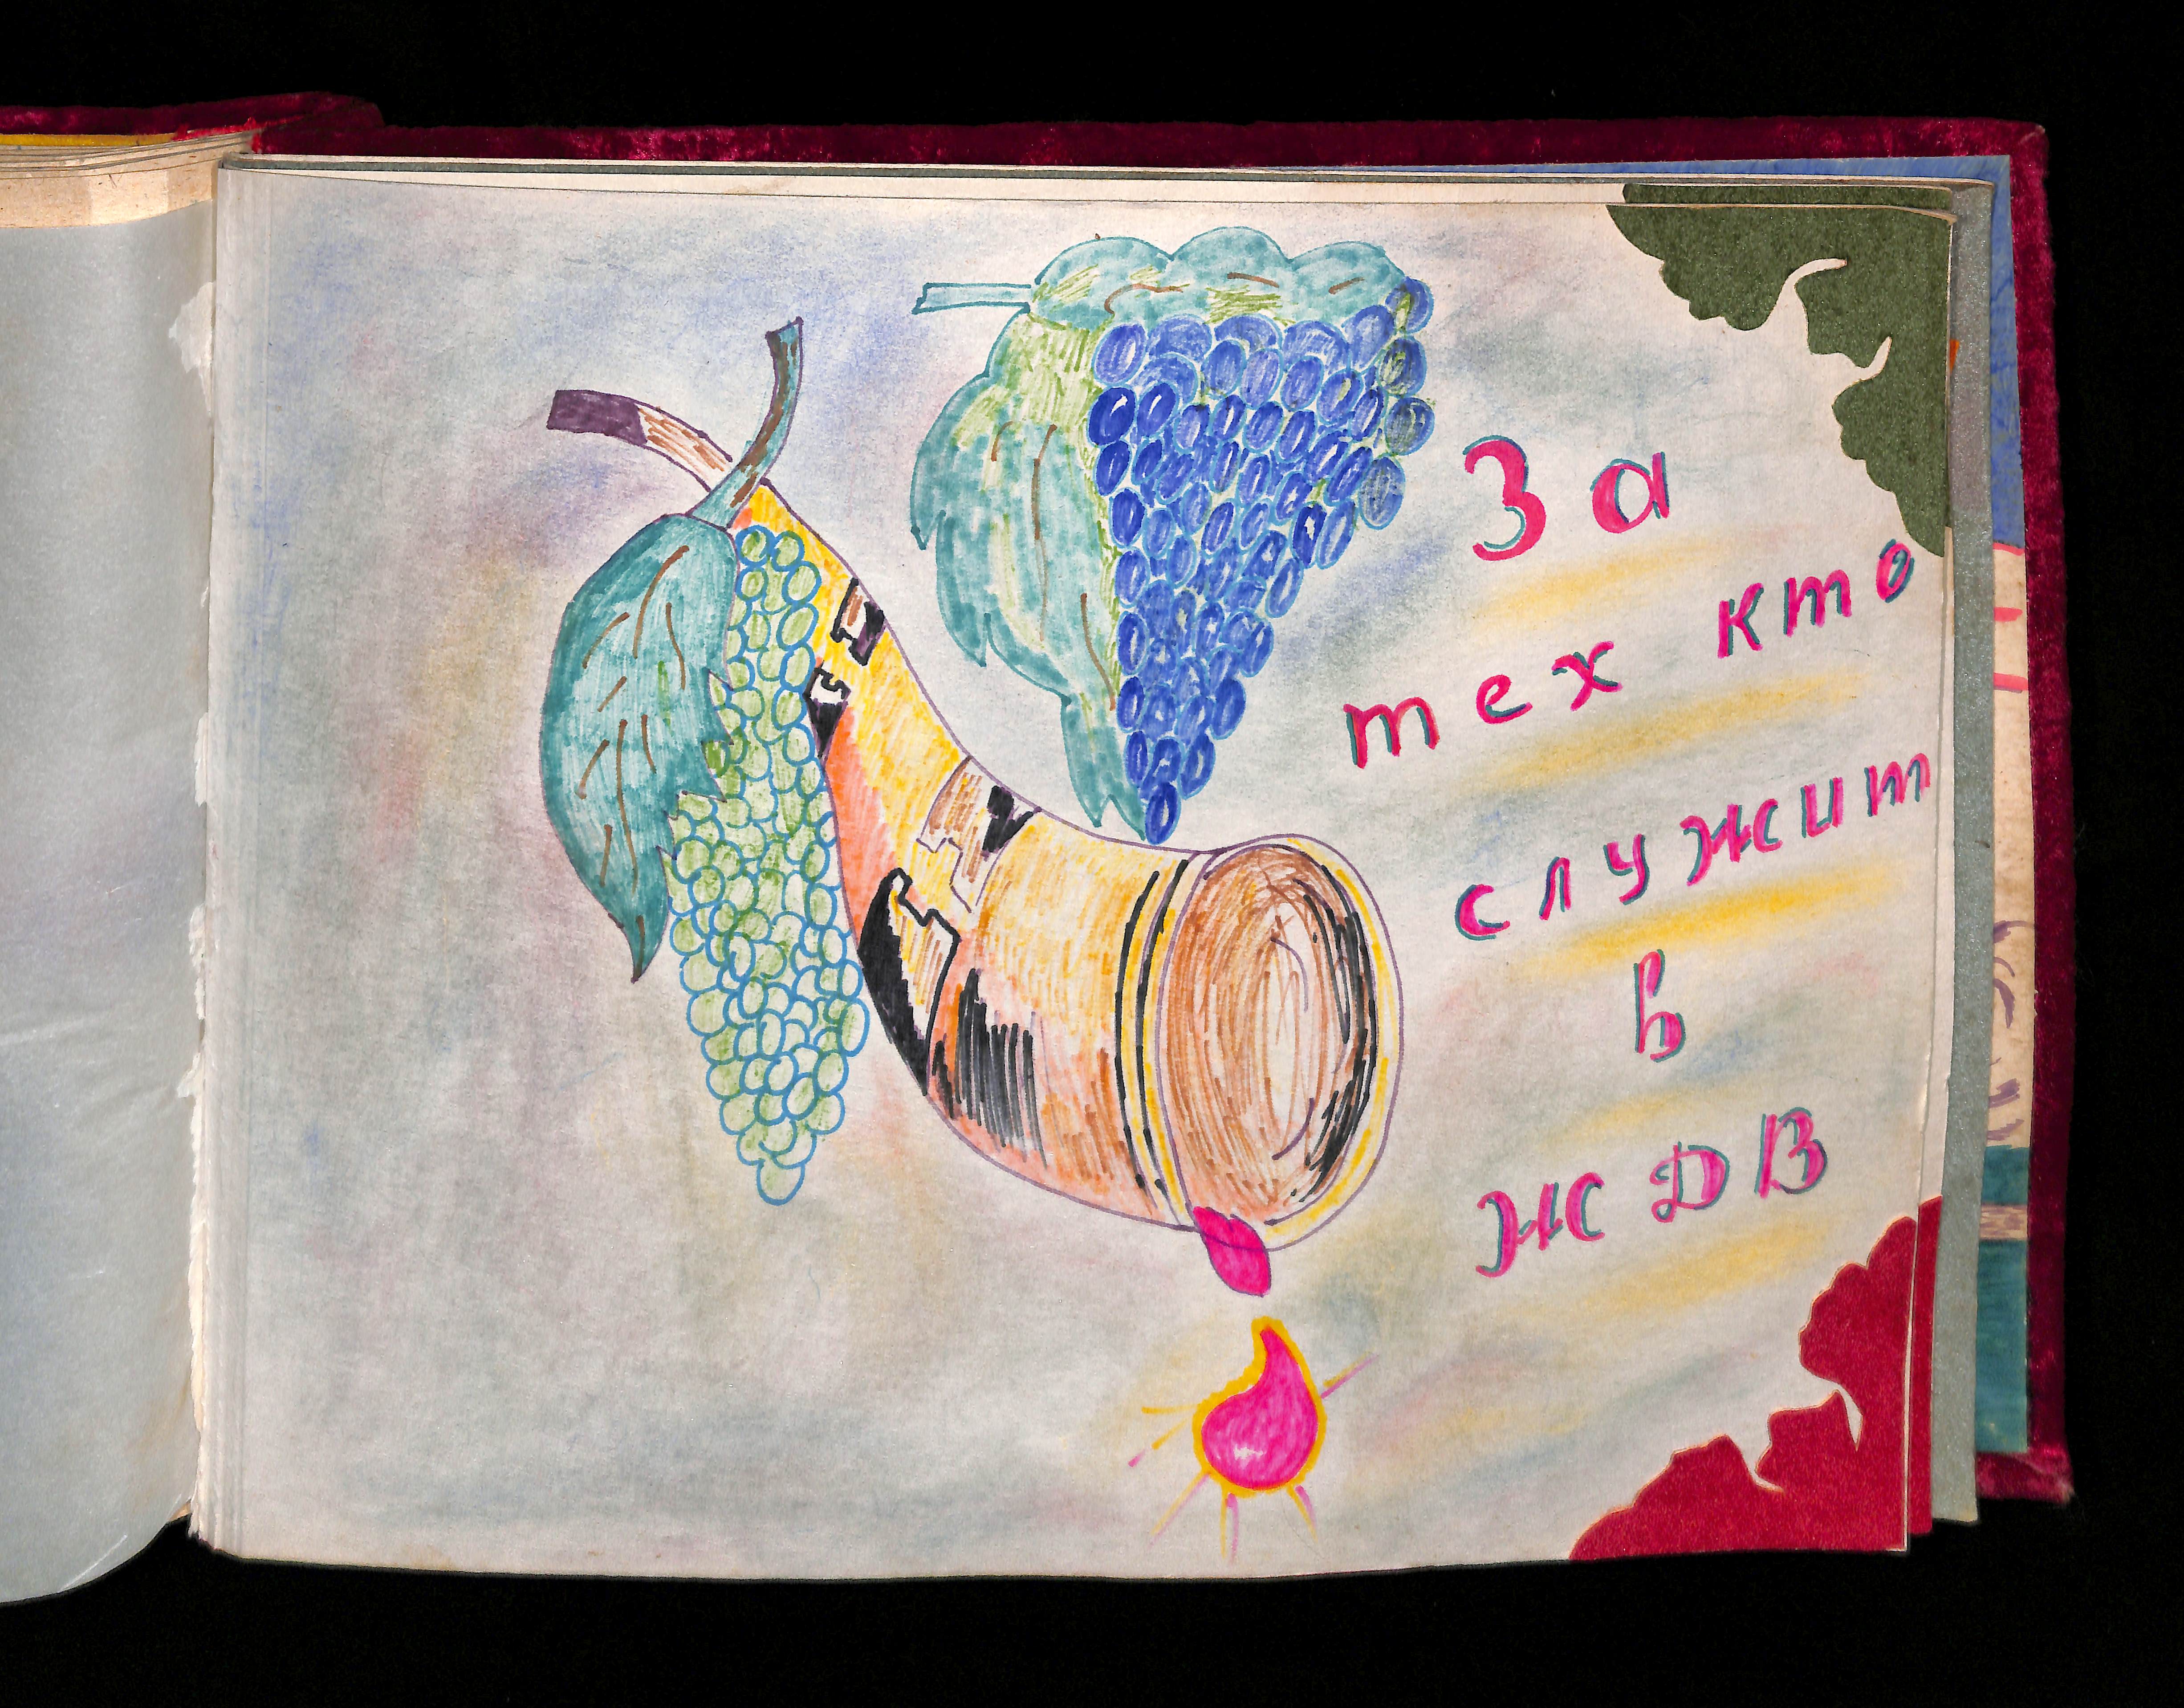 За
тех кто
служит
в
ЖДВ